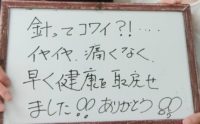 針ってコワイ?!‥‥
イヤイヤ、痛くなく、
早く健康を取戻せ
ました!! ありがとう!!